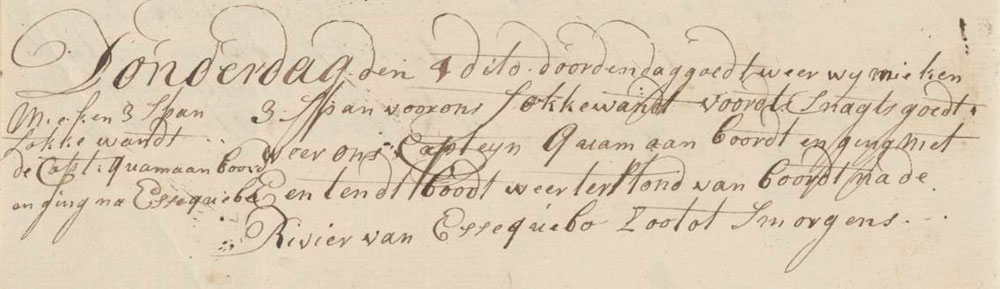 Donderdag den 4 dito doordendag goedt weer wy mieken
3 Span voor ons fokkewandt voorde Snagts goedt
weer ons Capteyn quam aan boordt en ging met
Een tendt boodt weer terstond van boordt na de
Rivier van Essequibo Zootot Smorgens
Mieken 3 Span
fokke wandt
de Capt: quam aan boord
en ging na Essequibo